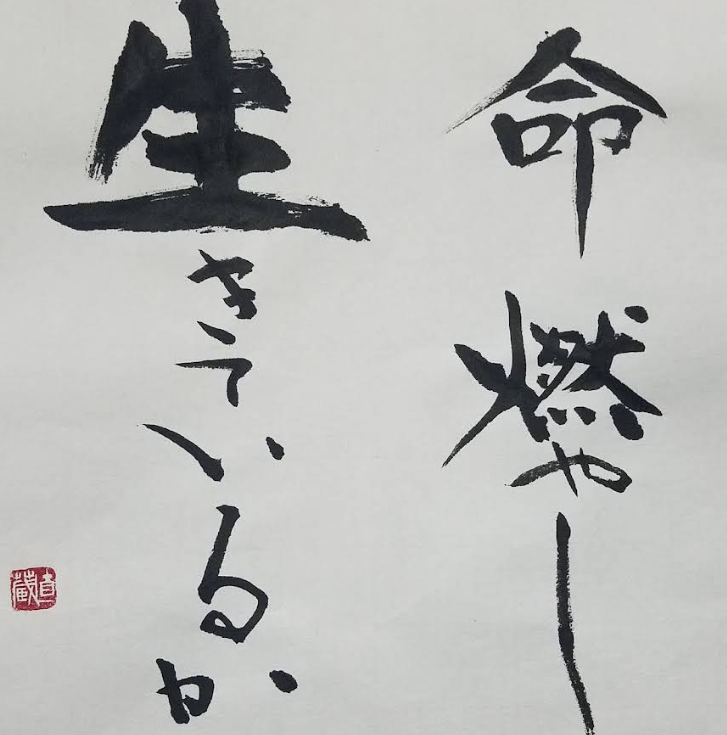 命燃やし
生きているか
直蔵